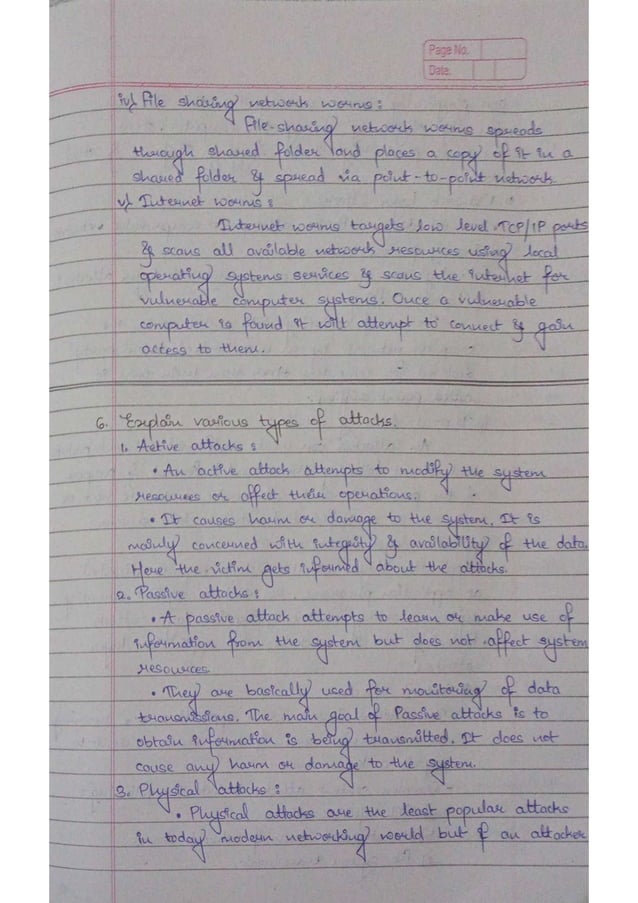 Page No.
Date.
iv) File sharing network worms :
File-sharing network worms spreads
through shared folder and places a copy of it in a
shared folder & spread via point-to-point network.
v) Internet worms :
Internet worms targets low level TCP/IP ports
& scans all available network resources using local
operating systems services & scans the internet for
vulnerable computer systems. Once a vulnerable
computer is found it will attempt to connect & gain
access to them.
6. Explain various types of attacks.
1. Active attacks :
• An active attack attempts to modify the system
resources or affect their operations.
• It causes harm or damage to the system. It is
mainly concerned with integrity & availability of the data.
Here the victim gets informed about the attacks.
2. Passive attacks :
• A passive attack attempts to learn or make use of
information from the system but does not affect system
resources
• They are basically used for monitoring of data
transmissions. The main goal of Passive attacks is to
obtain information is being transmitted. It does not
cause any harm or damage to the system.
3. Physical attacks :
• Physical attacks are the least popular attacks
in today modern networking world but if an attacker